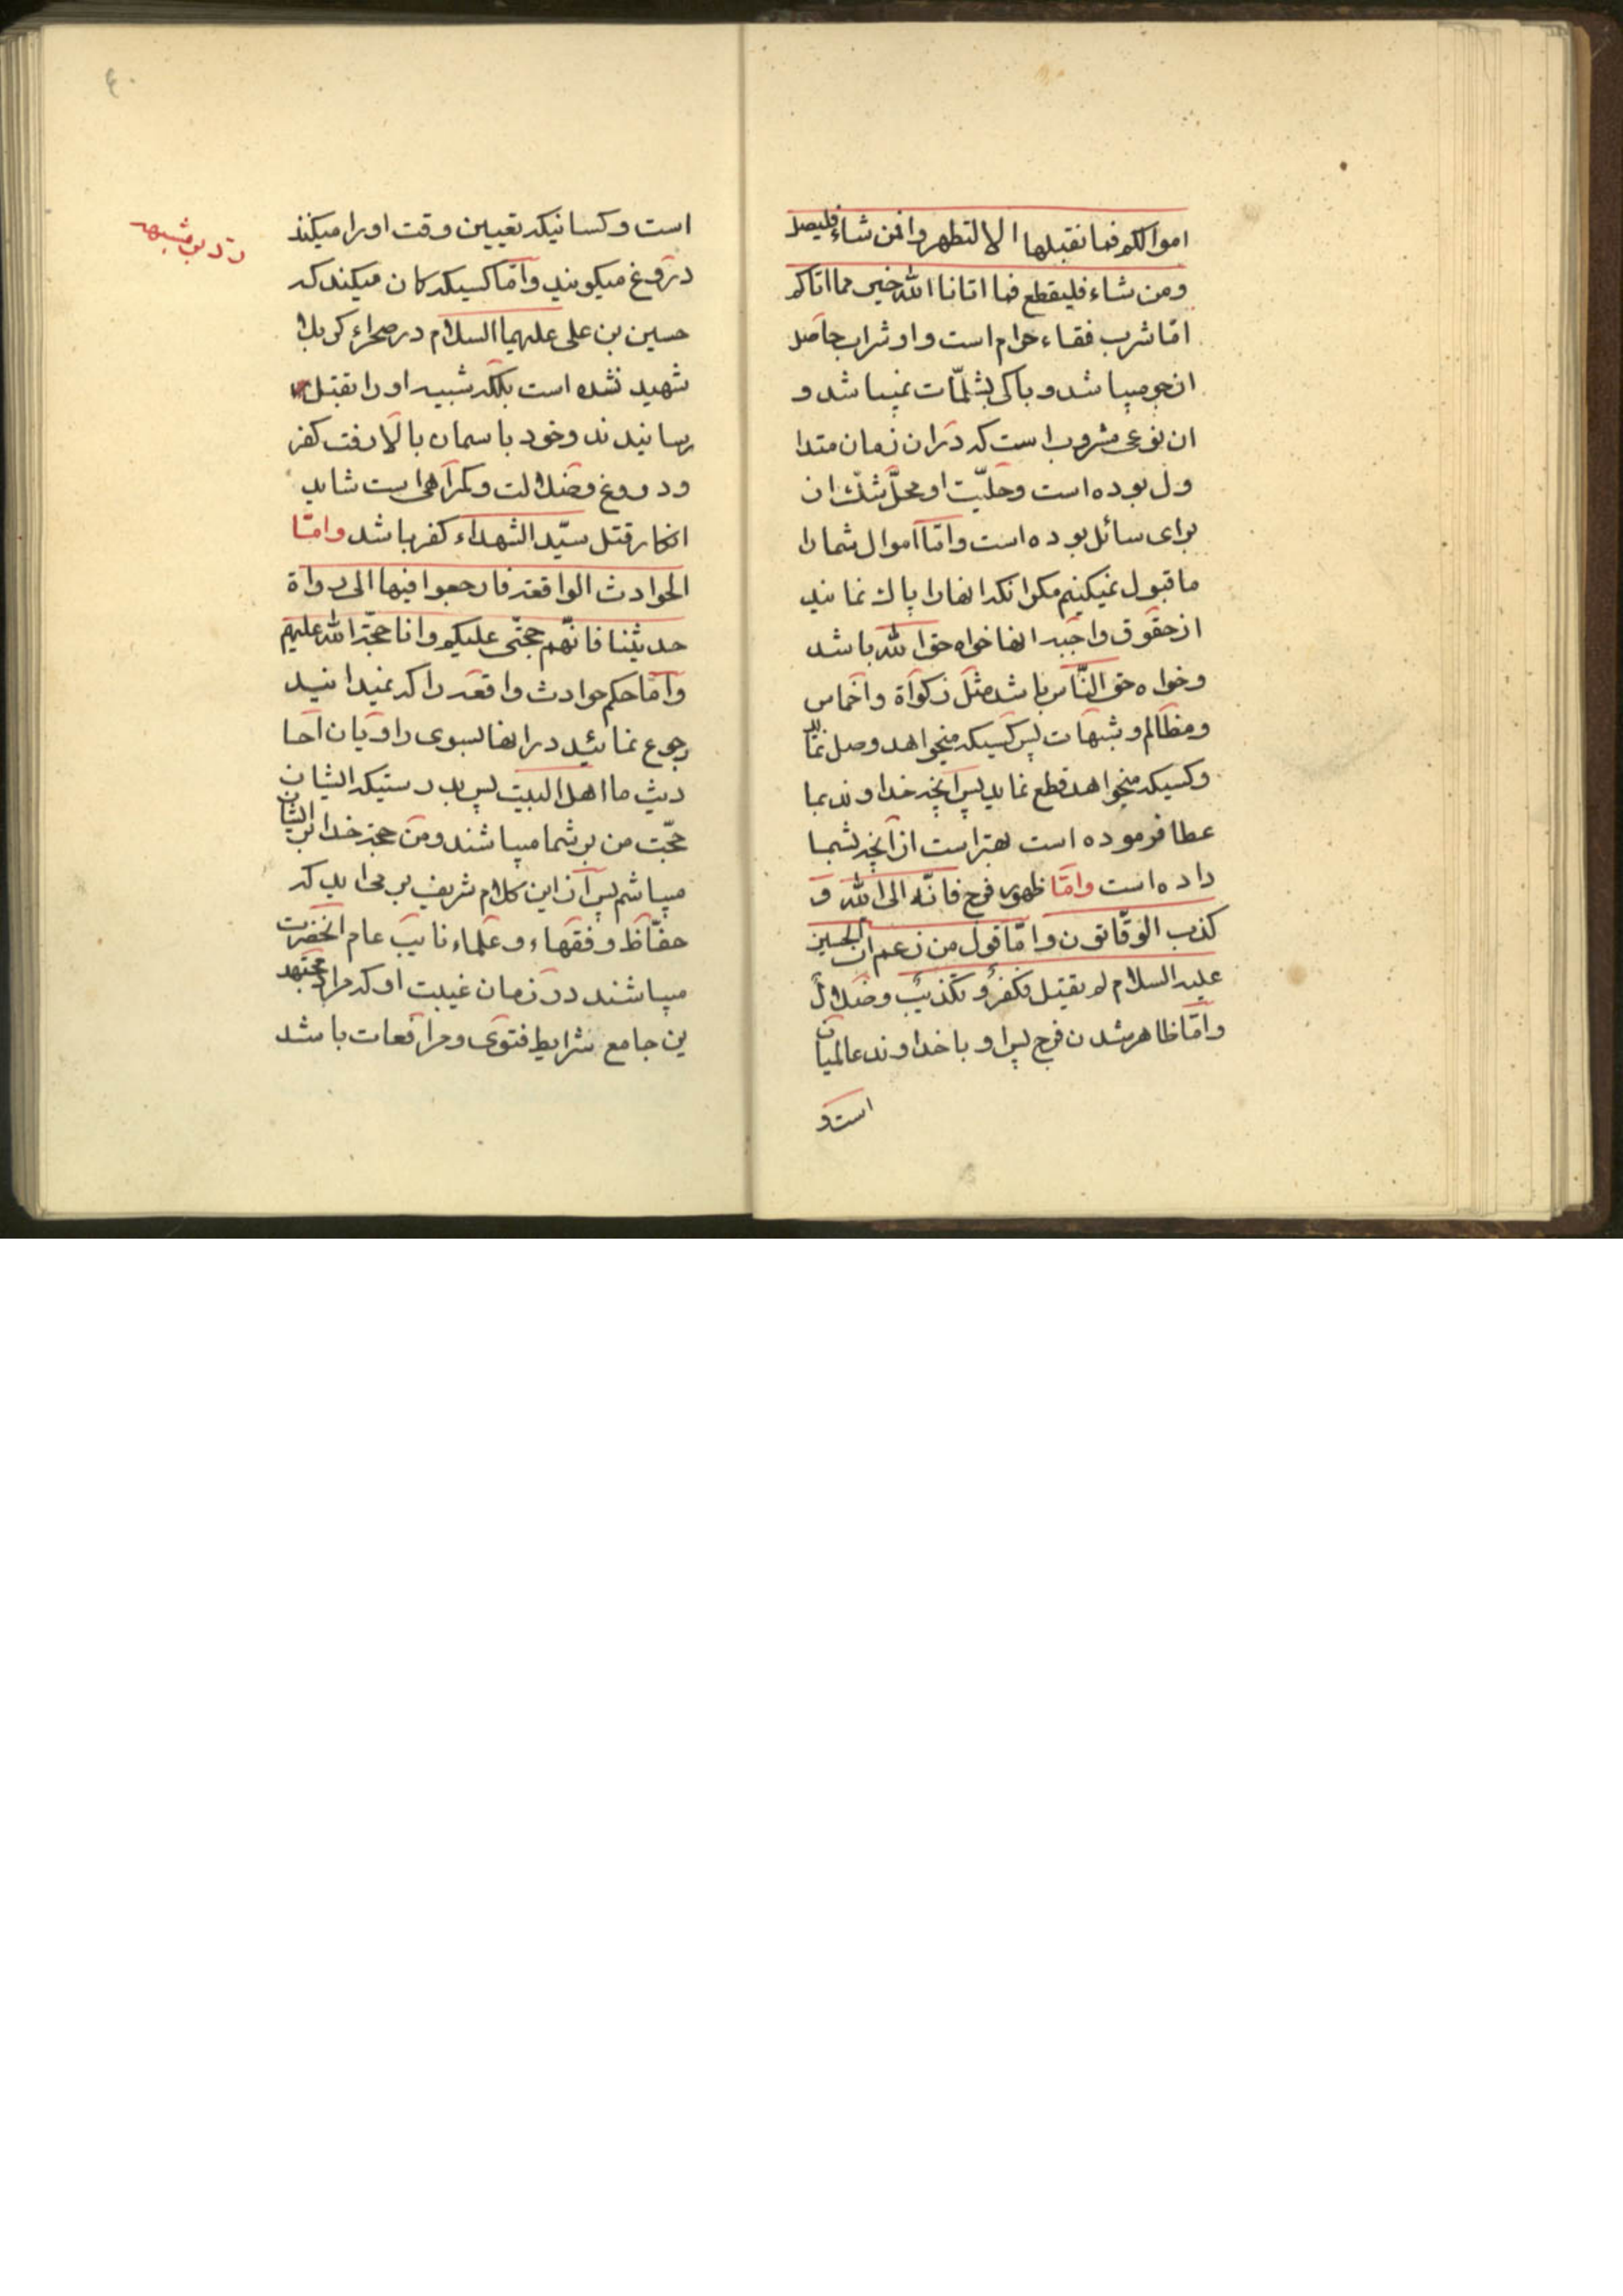 اموالكم فما نقبلها الا لتطهروا فمن شاء فليصل
ومن شاء فليقطع فما اتانا الله خير مما اتاكم
امّا شرب فقاء حرام است و او شراب حاصل
از جو میباشد و باکی بشلمّات نمیباشد و
ان نوعی مشروب است که در ان زمان متدا
ول بوده است و حلیّت او محلّ شکّ ان
برای سائل بوده است و امّا اموال شما را
ما قبول نمیکنیم مکر انکه انها را پاک نمائید
از حقوق واجبه انها خواه حق الله باشد
و خواه حق النّاس باشد مثل زکوة و اخماس
و مظالم و شبهات پس کسیکه میخواهد وصل نماید
و کسیکه میخواهد قطع نماید پس آنچه خداوند بما
عطا فرموده است بهتر است از آنچه بشما
داده است وامّا ظهور فرج فانّه الى الله و
كذب الوقّاتون و امّا قول من زعم ان الحسين
عليه السلام لم يقتل فكفرٌ و تكذيبٌ و ضلالٌ
و امّا ظاهر شدن فرج پس او با خداوند عالمیان
است و
۴۰
است و کسانیکه تعیین وقت او را میکنند
دروغ میکویند و امّا کسیکه کان میکند که
حسین بن علی علیهما السلام در صحراء کربلا
شهید نشده است بلکه شبیه او را بقتل
رسانیدند و خود باسمان بالا رفت کفر
و دروغ و ضلالت و کمراهی است شاید
انکار قتل سیّد الشهداء کفر باشد وامّا
الحوادث الواقعه فارجعوا فيها الى رواة
حديثنا فانّهم حجّتى عليكم و انا حجّة الله عليهم
و امّا حکم حوادث واقعه را که نمیدانید
رجوع نمائید در انها بسوی راویان احا
دیث ما اهل البیت پس بدرستیکه ایشان
حجّت من بر شما میباشند و من حجة خدا بر ایشان
میباشم پس از این کلام شریف بر می اید که
حفّاظ و فقهاء و علماء نایب عام انحضرت
میباشند در زمان غیبت او که مراد مجتهد
ین جامع شرایط فتوی و مرافعات باشد